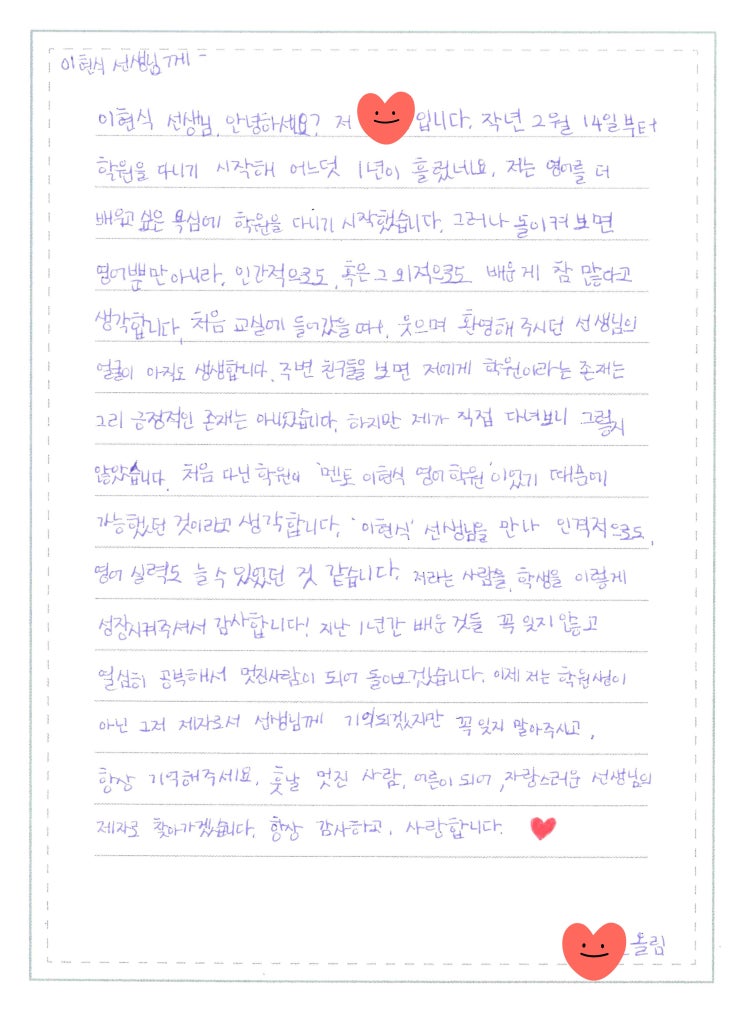 이현식 선생님께 -
이현식 선생님, 안녕하세요? 저 입니다. 작년 2월 14일부터
학원을 다니기 시작해 어느덧 1년이 흘렀네요. 저는 영어를 더
배우고 싶은 욕심에 학원을 다니기 시작했습니다. 그러나 돌이켜 보면
영어뿐만 아니라, 인간적으로도, 혹은 그 외적으로도 배운 게 참 많다고
생각합니다. 처음 교실에 들어갔을 때, 웃으며 환영해 주시던 선생님의
얼굴이 아직도 생생합니다. 주변 친구들을 보면 저에게 학원이라는 존재는
그리 긍정적인 존재는 아니었습니다. 하지만 제가 직접 다녀보니 그렇지
않았습니다. 처음 다닌 학원이 '멘토 이현식 영어학원'이었기 때문에
가능했던 것이라고 생각합니다. '이현식' 선생님을 만나 인격적으로도,
영어 실력도 늘 수 있었던 것 같습니다. 저라는 사람을, 학생을 이렇게
성장시켜주셔서 감사합니다! 지난 1년간 배운 것들 꼭 잊지 않고
열심히 공부해서 멋진사람이 되어 돌아오겠습니다. 이제 저는 학원생이
아닌 그저 제자로서 선생님께 기억되겠지만 꼭 잊지 말아주시고,
항상 기억해주세요. 훗날 멋진 사람, 어른이 되어, 자랑스러운 선생님의
제자로 찾아가겠습니다. 항상 감사하고, 사랑합니다.
올림